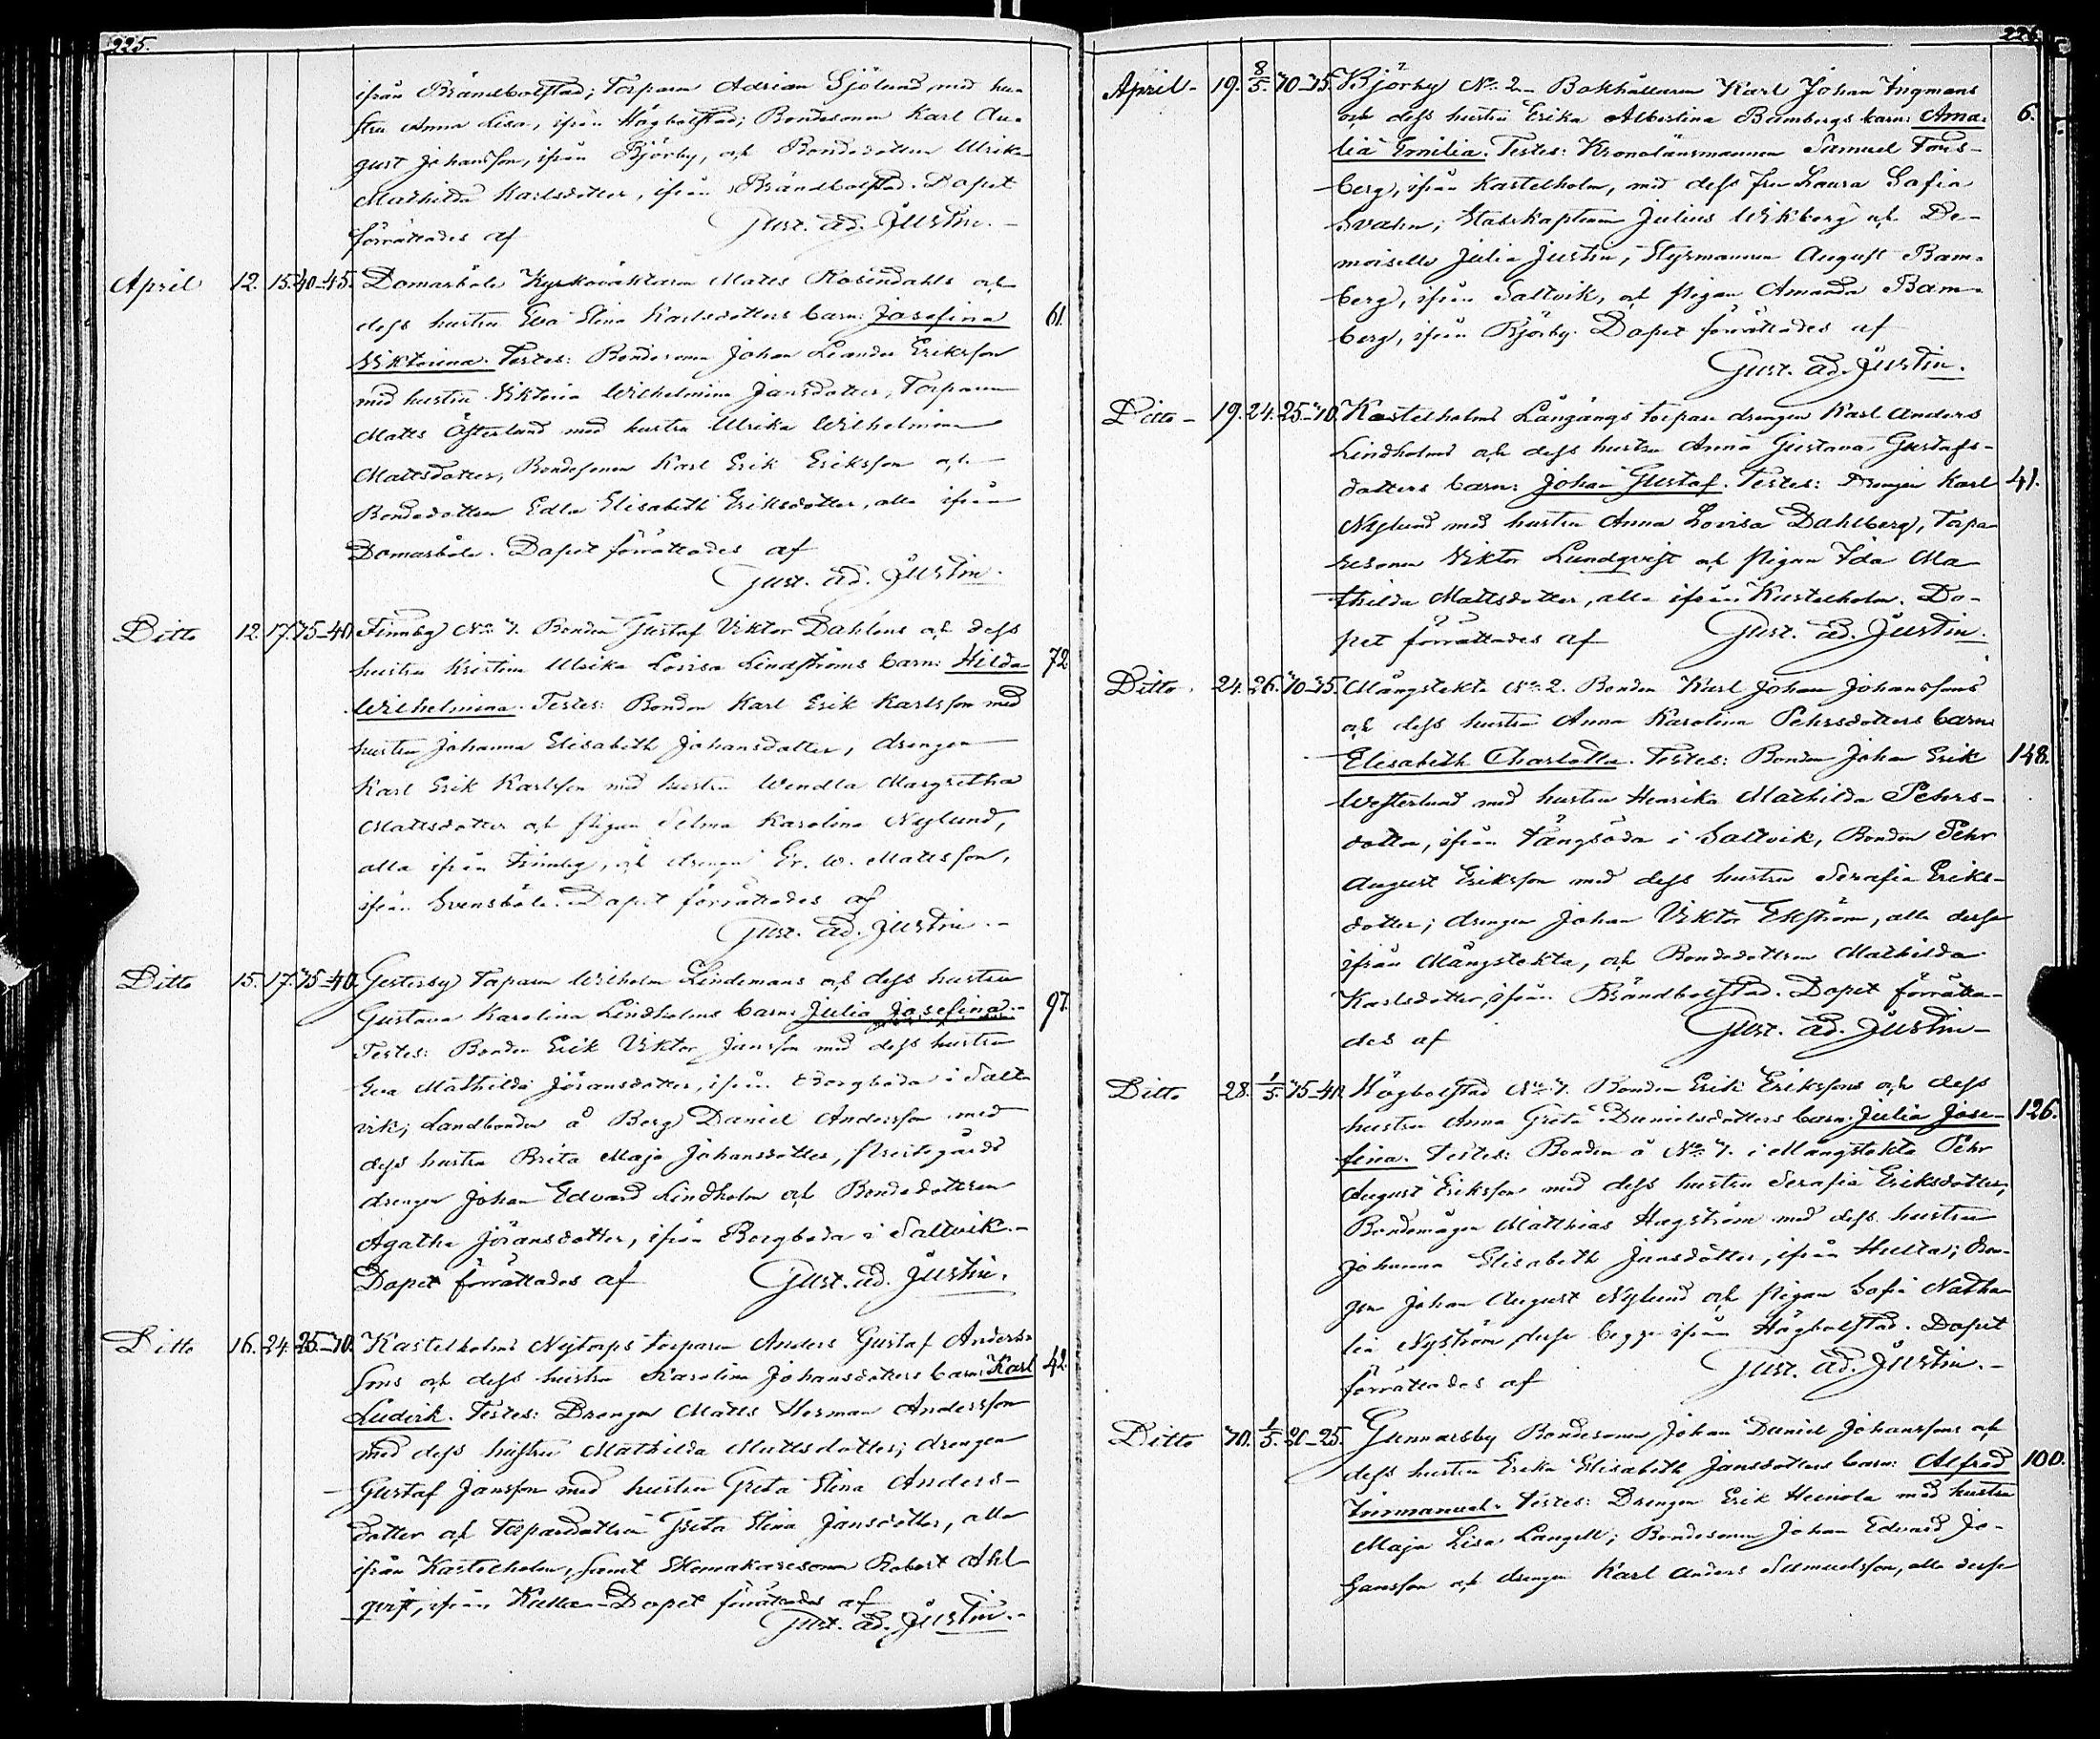 225.
ifrån Brändbolstad; Torparen Adrian Sjölund med hu-
stru Anna Lisa, ifrån Högbolstad; Bondesonen Karl Au-
gust Johansson, ifrån Björby, och Bondedottren Ulrika
Mathilda Karlsdotter, ifrån Brändbolstad. Dopet
förrättades af Gust. Ad. Justin.
April 12. 15. 40-45. Domarböle Kyrkoväktaren Matts Rosendahls och
dess hustru Eva Stina Karlsdotters barn: Josefina 61.
Viktorina. Testes: Bondesonen Johan Leander Eriksson
med hustru Viktoria Wilhelmina Jansdotter, Torparen
Matts Österlund med hustru Ulrika Wilhelmina
Mattsdotter, Bondesonen Karl Erik Eriksson och
Bondedottren Edla Elisabeth Eriksdotter, alla ifrån
Domarböle. Dopet förrättades af
Gust. Ad. Justin.
Ditto 12. 17. 35-40. Finnby No 7. Bonden Gustaf Viktor Dahléns och dess
hustru Kristina Ulrika Lovisa Lindströms barn: Hilda 72
Wilhelmina. Testes: Bonden Karl Erik Karlsson med
hustru Johanna Elisabeth Johansdotter, drengen
Karl Erik Karlsson med hustru Wendla Margretha
Mattsdotter och pigan Selma Karolina Nylund,
alla ifrån Finnby, och drengen Er. W. Mattsson,
ifrån Svensböle. Dopet förrättades af
Gust. Ad. Justin.
Ditto 15. 17. 35-40. Gesterby Torparen Wilhelm Lindemans och dess hustru
Gustava Karolina Lindholms barn: Julia Josefina. 97.
Testes: Bonden Erik Viktor Jansson med dess hustru
Eva Mathilda Jöransdotter, ifrån Borgboda i Salt-
vik; Landbonden å Berg Daniel Andersson med
dess hustru Brita Maja Johansdotter, Prestgårds
drengen Johan Edvard Lindholm och Bondedottren
Agatha Jöransdotter, ifrån Borgboda i Saltvik.
Dopet förrättades af Gust. Ad. Justin.
Ditto 16. 24. 25-30. Kastelholms Nytorps torparen Anders Gustaf Anders-
sons och dess hustru Karolina Johansdotters barn: Karl 42.
Ludvik. Testes: Drengen Matts Herman Andersson
med dess hustru Mathilda Mattsdotter; drengen
Gustaf Jansson med hustru Greta Stina Anders-
dotter och Torparedottren Greta Stina Jansdotter, alla
ifrån Kastelholm, samt Skomakaresonen Robert Ahl-
qvist, ifrån Kulla. Dopet förrättades af
Gust. Ad. Justin.
226.
April 19. 8/5. 30-35. Björby No 2. Bokhållaren Karl Johan Ingmans
och dess hustru Erika Albertina Bambergs barn: Ama- 6.
lia Emilia. Testes: Kronolänsmannen Samuel Fors-
berg, ifrån Kastelholm, med dess fru Laura Sofia
Svahn; Stabskaptenen Julius Wikberg och De-
moiselle Julia Justin, Styrmannen August Bam-
berg, ifrån Saltvik, och pigan Amanda Bam-
berg, ifrån Björby. Dopet förrättades af
Gust. Ad. Justin.
Ditto 19. 24. 25-30. Kastelholms Långängs torpare drengen Karl Anders
Lindholms och dess hustru Anna Gustava Gustafs-
dotters barn: Johan Gustaf. Testes: Drengen Karl 41.
Nylund med hustru Anna Lovisa Dahlberg, Torpa-
resonen Viktor Lundqvist och pigan Ida Ma-
thilda Mattsdotter, alla ifrån Kastelholm. Do-
pet förrättades af Gust. Ad. Justin.
Ditto 24. 26. 30-35. Mångstekta No 2. Bonden Karl Johan Johanssons
och dess hustru Anna Karolina Pehrsdotters barn:
Elisabeth Charlotta. Testes: Bonden Johan Erik 148.
Westerlund med hustru Henrika Mathilda Pehrs-
dotter, ifrån Långsöda i Saltvik, Bonden Pehr
August Eriksson med dess hustru Serafia Eriks-
dotter; drengen Johan Viktor Ekström, alla desse
ifrån Mångstekta, och Bondedottren Mathilda
Karlsdotter, ifrån Brändbolstad. Dopet förrätta-
des af Gust. Ad. Justin
Ditto 28. 1/5. 35-40. Högbolstad No 7. Bonden Erik Erikssons och dess
hustru Anna Greta Danielsdotters barn: Julia Jose- 126.
fina. Testes: Bonden å No 7. i Mångstekta Pehr
August Eriksson med dess hustru Serafia Eriksdotter,
Bondemågen Matthias Hagström med dess hustru
Johanna Elisabeth Jansdotter, ifrån Hulta; dren-
gen Johan August Nylund och pigan Sofia Natha-
lia Nyström, desse begge ifrån Högbolstad. Dopet
förrättades af Gust. Ad. Justin.
Ditto 30. 1/5. 20-25. Gunnarsby Bondesonen Johan Daniel Johanssons och
dess hustru Erika Elisabeth Jansdotters barn: Alfred 100.
Immanuel. Testes: Drengen Erik Heinola med hustru
Maja Lisa Langell; Bondesonen Johan Edvard Jo-
hansson och drengen Karl Anders Samuelsson, alla desse